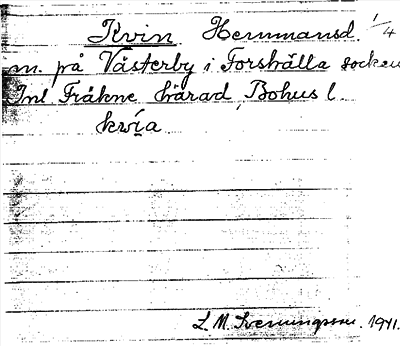 Kvin Hemmansd. 1/4
m. på Västerby i Forshälla socken
Inl Fräkne härad, Bohus l
kwía
L. M. Svenungsson. 1941.